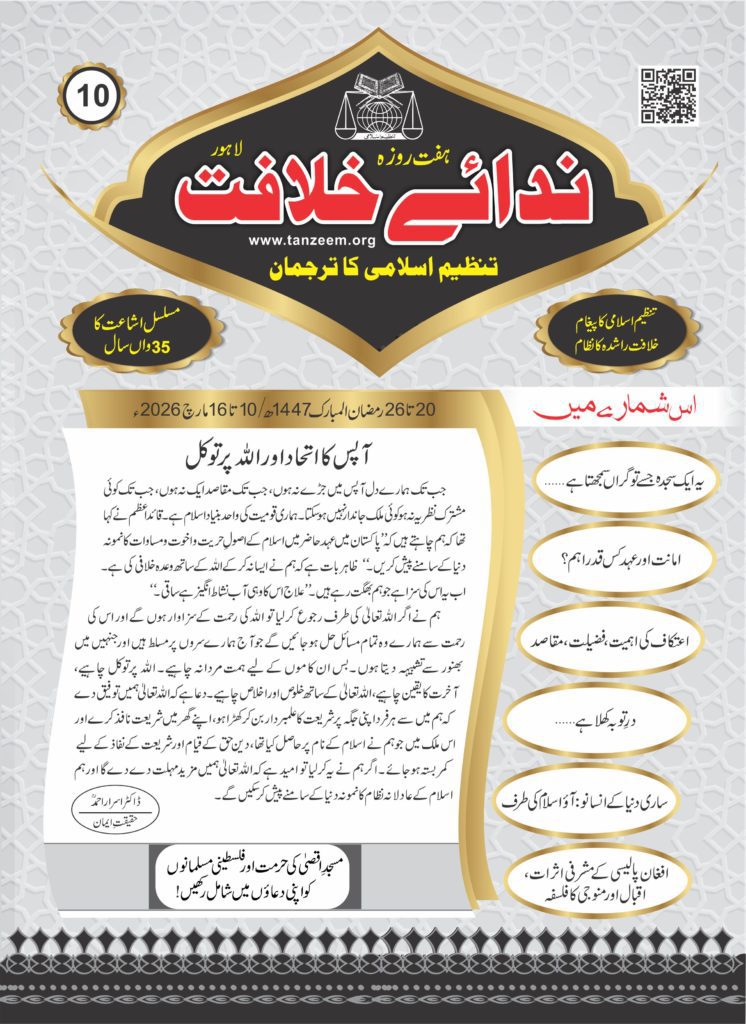 10
تنظیم اسلامی
ہفت روزہ
لاہور
ندائے خلافت
www.tanzeem.org
تنظیم اسلامی کا ترجمان
تنظیم اسلامی کا پیغام
خلافت راشدہ کا نظام
مسلسل اشاعت کا
35 واں سال
20 تا 26 رمضان المبارک 1447ھ / 10 تا 16 مارچ 2026ء
آپس کا اتحاد اور اللہ پر توکل
جب تک ہمارے دل آپس میں جڑے نہ ہوں، جب تک مقاصد ایک نہ ہوں، جب تک کوئی
مشترک نظریہ نہ ہو کوئی ملک جاندار نہیں ہو سکتا۔ ہماری قومیت کی واحد بنیاد اسلام ہے۔ قائد اعظم نے کہا
تھا کہ ہم چاہتے ہیں کہ ”پاکستان میں عہد حاضر میں اسلام کے اصولِ حریت و اخوت و مساوات کا نمونہ
دنیا کے سامنے پیش کریں۔“ ظاہر بات ہے کہ ہم نے ایسا نہ کر کے اللہ کے ساتھ وعدہ خلافی کی ہے۔
اب یہ اس کی سزا ہے جو ہم بھگت رہے ہیں۔ ”علاج اس کا وہی آب نشاط انگیز ہے ساقی۔“
ہم نے اگر اللہ تعالیٰ کی طرف رجوع کر لیا تو اللہ کی رحمت کے سزاوار ہوں گے اور اس کی
رحمت سے ہمارے وہ تمام مسائل حل ہو جائیں گے جو آج ہمارے سروں پر مسلط ہیں اور جنہیں میں
بھنور سے تشبیہہ دیتا ہوں۔ بس ان کاموں کے لیے ہمت مردانہ چاہیے۔ اللہ پر توکل چاہیے،
آخرت کا یقین چاہیے، اللہ تعالیٰ کے ساتھ خلوص اور اخلاص چاہیے۔ دعا ہے کہ اللہ تعالیٰ ہمیں توفیق دے
کہ ہم میں سے ہر فرد اپنی جگہ پر شریعت کا علمبردار بن کر کھڑا ہو، اپنے گھر میں شریعت نافذ کرے اور
اس ملک میں جو ہم نے اسلام کے نام پر حاصل کیا تھا، دین حق کے قیام اور شریعت کے نفاذ کے لیے
کمر بستہ ہو جائے۔ اگر ہم نے یہ کر لیا تو امید ہے کہ اللہ تعالیٰ ہمیں مزید مہلت دے دے گا اور ہم
اسلام کے عادلانہ نظام کا نمونہ دنیا کے سامنے پیش کر سکیں گے۔
ڈاکٹر اسرار احمدؒ
حقیقت ایمان
مسجد اقصیٰ کی حرمت اور فلسطینی مسلمانوں
کو اپنی دعاؤں میں شامل رکھیں!
اس شمارے میں
یہ ایک سجدہ جسے تو گراں سمجھتا ہے......
امانت اور عہد کس قدر اہم؟
اعتکاف کی اہمیت، فضیلت، مقاصد
درِ توبہ کھلا ہے......
ساری دنیا کے انسانو: آؤ اسلام کی طرف
افغان پالیسی کے مشرقی اثرات،
اقبال اور منوجی کا فلسفہ